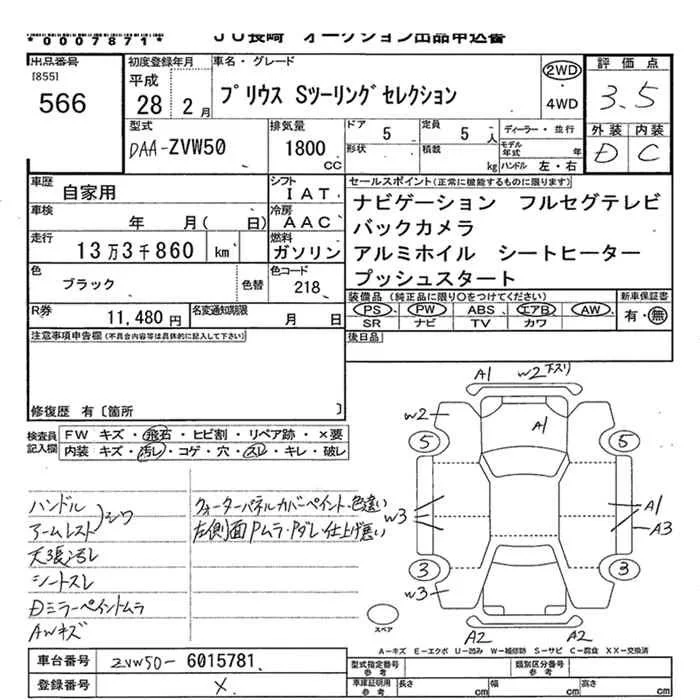 *0007871*
JU長崎 オークション出品申込書
出品番号 [855] 566
初度登録年月 平成 28 年 2 月
車名・グレード プリウス Sツーリングセレクション
2WD ・ 4WD
評価点 3.5
外装 内装
D C
型式 DAA-ZVW50
排気量 1800 CC
ドア 5 定員 5 人
形状 積載 kg
ディーラー・並行
モデル年式 年
ハンドル 左・右
車歴 自家用
シフト IAT
車検 年 月( 日)
冷房 AAC
走行 13万3千860 km
燃料 ガソリン
色 ブラック 色替
色コード 218
R券 11,480 円
名変通知期限 月 日
セールスポイント(正常に機能するものに限ります)
ナビゲーション フルセグテレビ
バックカメラ
アルミホイル シートヒーター
プッシュスタート
装備品(純正品に限り○をつけてください)
PS PW ABS エアB AW
SR ナビ TV カワ
新車保証書 有・無
後日品
注意事項申告欄(不具合内容等は具体的に記入して下さい)
修復歴 有〔箇所 〕
検査員記入欄
FW キズ・飛石・ヒビ割・リペア跡・×要
内装 キズ・汚レ・コゲ・穴・スレ・キレ・破レ
ハンドル
アームレスト シワ
天張汚レ
シートスレ
Dミラーペイントムラ
AWキズ
クォーターパネルカバーペイント・色違い
左側面Pムラ・Pダレ・仕上げ悪い
A1 W2 下スリ
W2 A1
5 5
W3 A1
A3
3 3
W3
A2 A2
スペア
A-キズ E-エクボ U-凹み W-補修跡 S-サビ C-腐食 XX-交換済
車台番号 ZVW50-6015781
登録番号 X
型式指定番号 参考
類別区分番号 参考
車庫証明用 参考 長さ cm 幅 cm 高さ cm